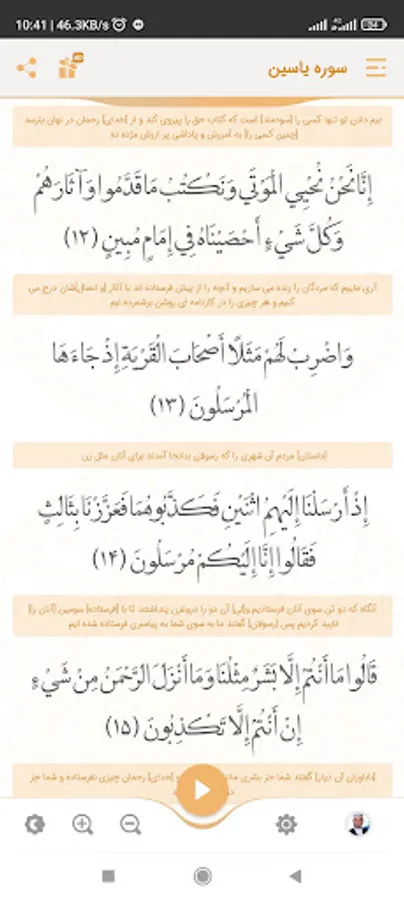 10:41 | 46.3KB/s
سوره یاسین
بیم دادن تو تنها کسی را [سودمند] است که کتاب حق را پیروی کند و از [خدای] رحمان در نهان بترسد
[چنین کسی را] به آمرزش و پاداشی پر ارزش مژده ده
إِنَّا نَحْنُ نُحْيِي الْمَوْتَىٰ وَنَكْتُبُ مَا قَدَّمُوا وَآثَارَهُمْ
وَكُلَّ شَيْءٍ أَحْصَيْنَاهُ فِي إِمَامٍ مُبِينٍ (۱۲)
آری ماییم که مردگان را زنده می سازیم و آنچه را از پیش فرستاده اند با آثار [و اعمال]شان درج می
کنیم و هر چیزی را در کارنامه ای روشن برشمرده ایم
وَاضْرِبْ لَهُمْ مَثَلًا أَصْحَابَ الْقَرْيَةِ إِذْ جَاءَهَا
الْمُرْسَلُونَ (۱۳)
[داستان] مردم آن شهری را که رسولان بدانجا آمدند برای آنان مثل زن
إِذْ أَرْسَلْنَا إِلَيْهِمُ اثْنَيْنِ فَكَذَّبُوهُمَا فَعَزَّزْنَا بِثَالِثٍ
فَقَالُوا إِنَّا إِلَيْكُمْ مُرْسَلُونَ (۱۴)
آنگاه که دو تن سوی آنان فرستادیم و[لی] آن دو را دروغزن پنداشتند تا با [فرستاده] سومین [آنان را]
تایید کردیم پس [رسولان] گفتند ما به سوی شما به پیامبری فرستاده شده ایم
قَالُوا مَا أَنْتُمْ إِلَّا بَشَرٌ مِثْلُنَا وَمَا أَنْزَلَ الرَّحْمَنُ مِنْ شَيْءٍ
إِنْ أَنْتُمْ إِلَّا تَكْذِبُونَ (۱۵)
[ناباوران آن دیار] گفتند شما جز بشری مانند و [خدای] رحمان چیزی نفرستاده و شما جز